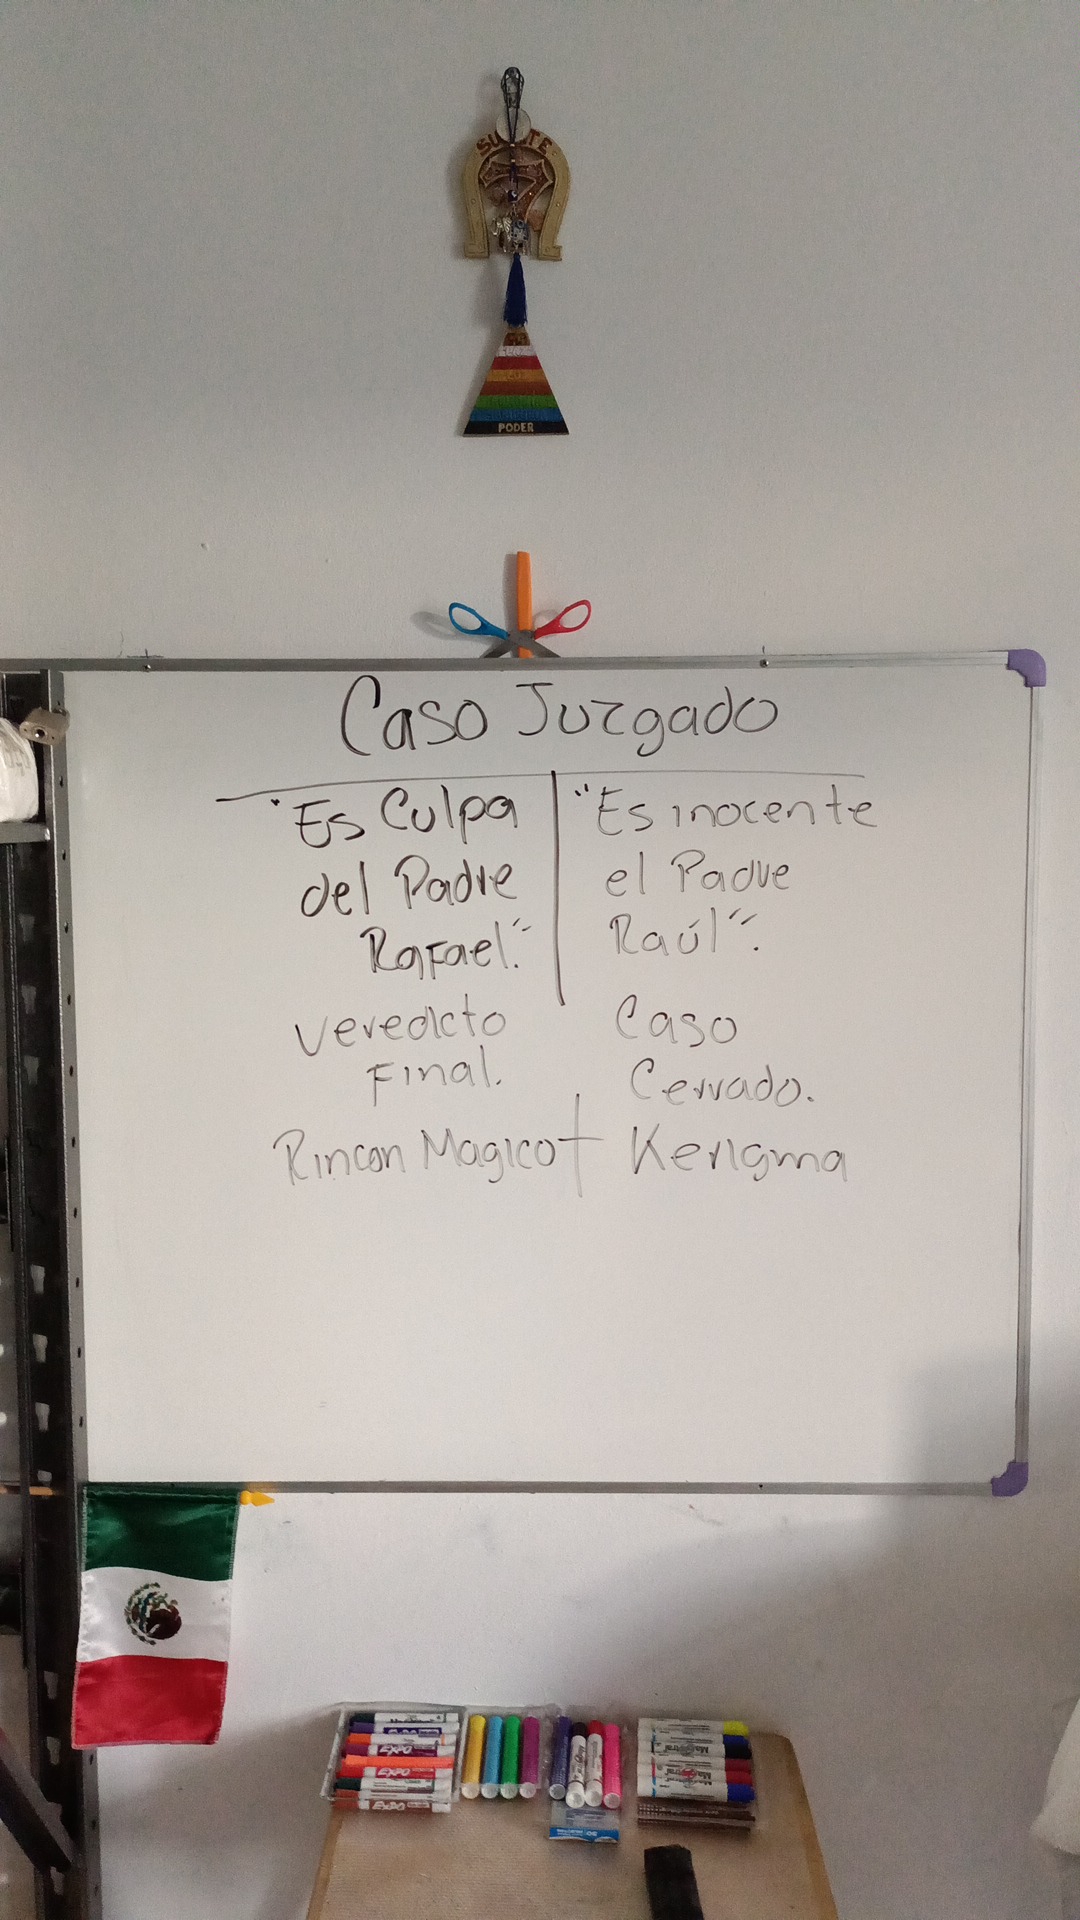 SUERTE
PODER
Caso Juzgado
"Es Culpa
del Padre
Rafael."
"Es inocente
el Padre
Raúl".
Veredicto
Final.
Caso
Cerrado.
Rincon Magico † Kerigma
EXPO
EXPO
EXPO
Magistral
Magistral